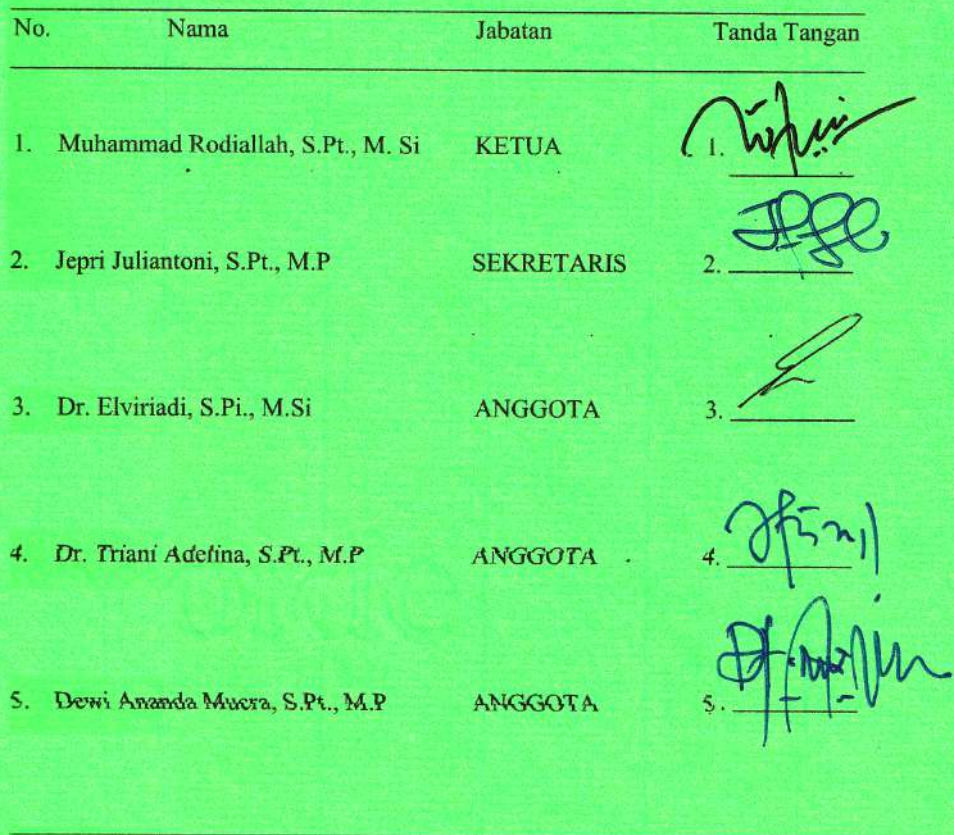 No. Nama Jabatan Tanda Tangan
1. Muhammad Rodiallah, S.Pt., M. Si KETUA 1.
2. Jepri Juliantoni, S.Pt., M.P SEKRETARIS 2.
3. Dr. Elviriadi, S.Pi., M.Si ANGGOTA 3.
4. Dr. Triani Adelina, S.Pt., M.P ANGGOTA 4.
5. Dewi Ananda Mucra, S.Pt., M.P ANGGOTA 5.